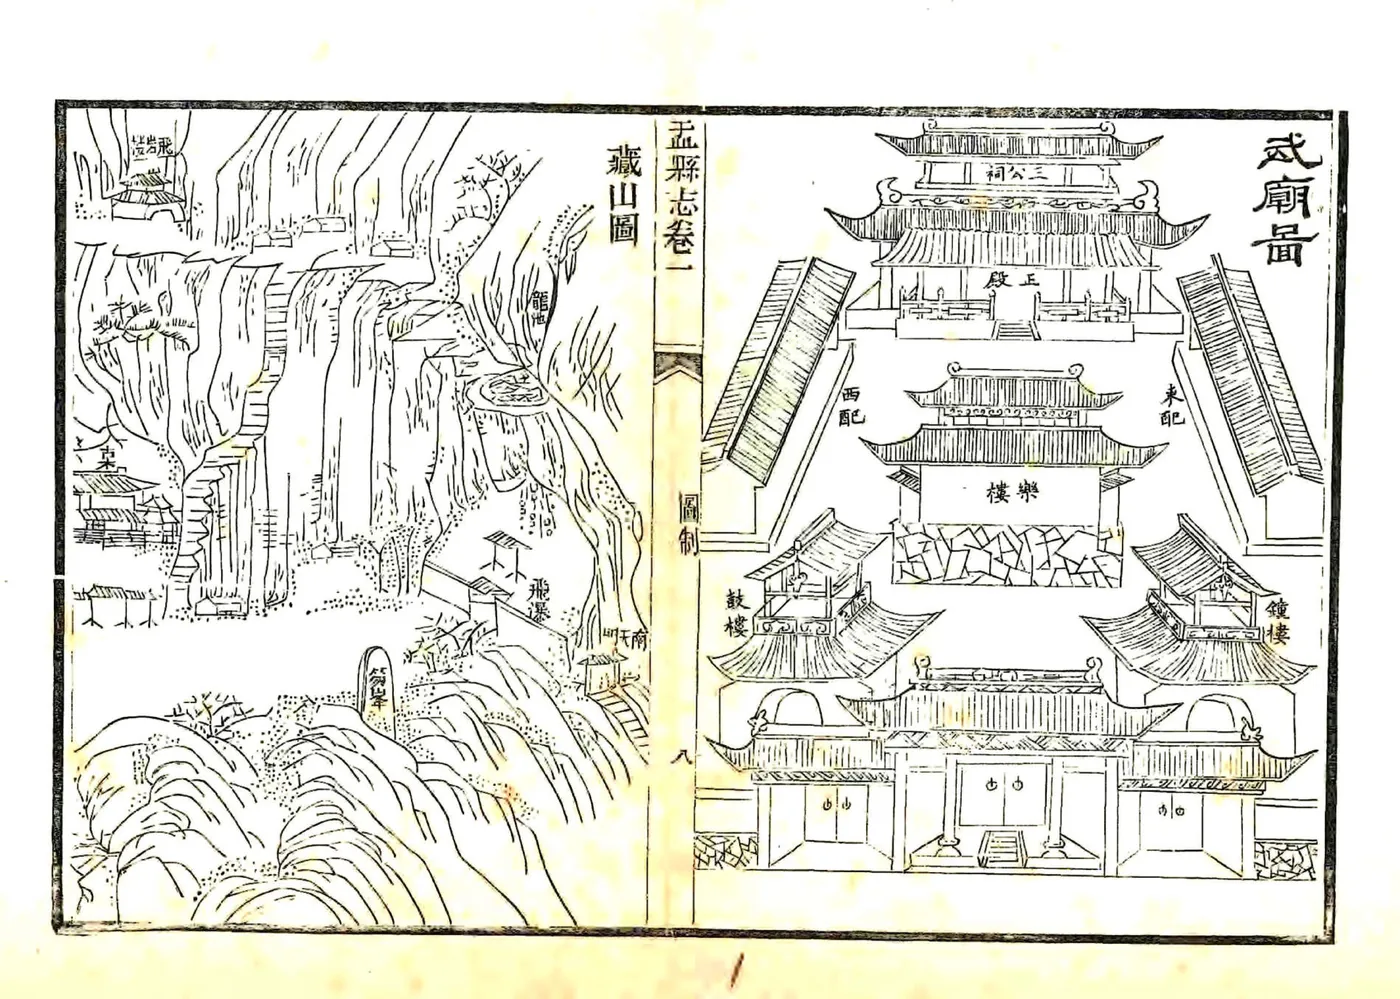 武廟圖
三公祠
正殿
東配
西配
樂樓
鐘樓
鼓樓
盂縣志卷一
圖制
八
藏山圖
龍池
飛瀑
南天門
笏峯
飛岩